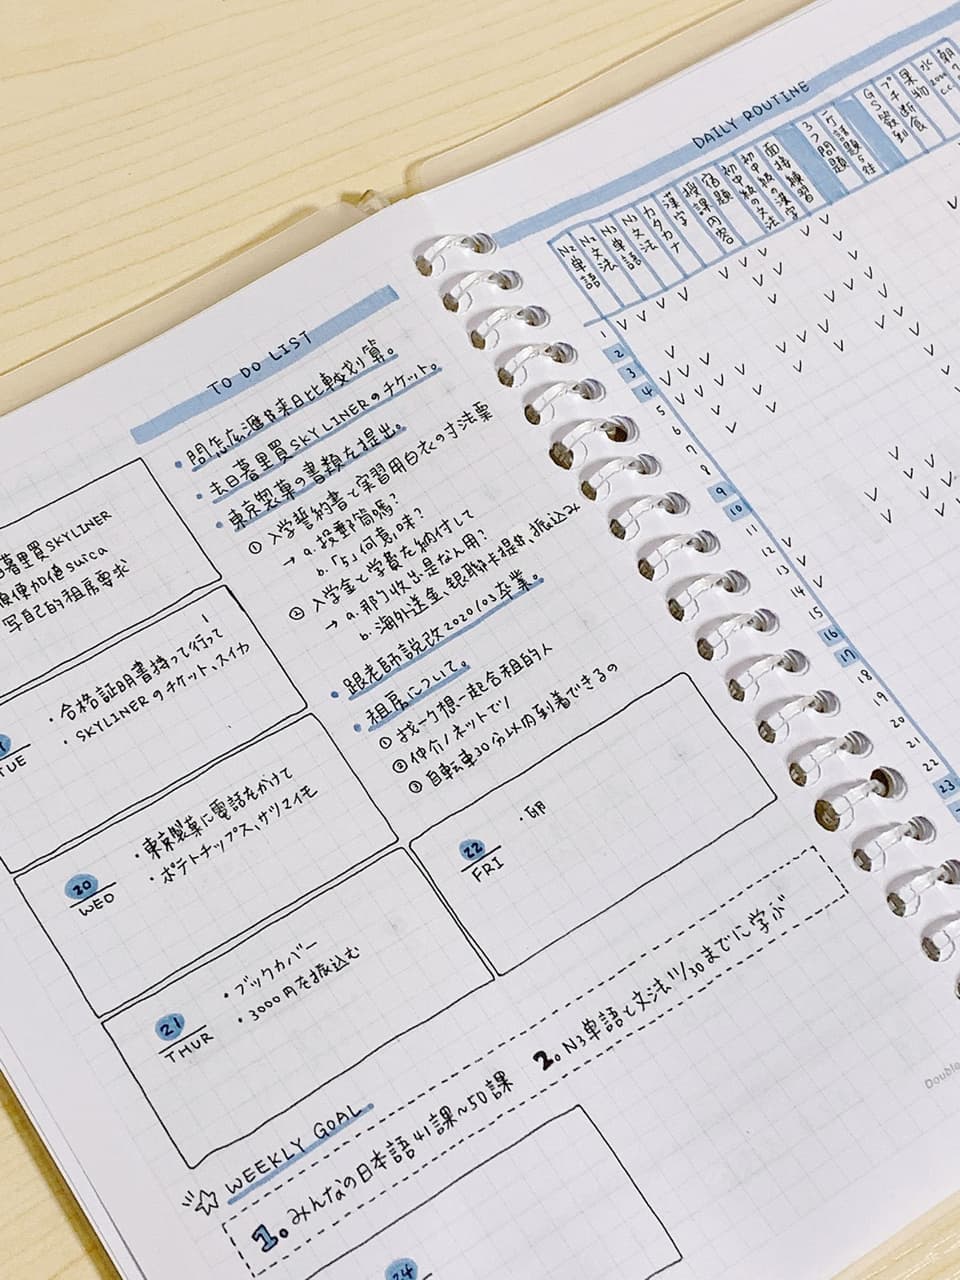 TO DO LIST
・問怎広滙日幣来日比較划算。
・去日暮里買SKYLINERのチケット。
・東京製菓の書類を提出。
① 入学誓約書と実習用白衣の寸法票
→ a. 投郵筒嗎?
b.「5」何意味?
② 入学金と学費を納付して
→ a. 那个收出是なん用?
b. 海外送金、銀聯卡提錢、振込み
・跟老師説改2020/03卒業。
・租房について。
① 找一个想一起合租的人
② 仲介/ネットで
③ 自転車30分以内到着できるの
暮里買SKYLINER
順便加值suica
写自己的租房要求
TUE
・合格証明書持って行って
・SKYLINERのチケット、スイカ
20
WED
・東京製菓に電話をかけて
・ポテトチップス、サツマイモ
21
THUR
・ブックカバー
・3000円を振込む
22
FRI
WEEKLY GOAL
1. みんなの日本語41課~50課
2. N3単語と文法11/30までに学ぶ
24
DAILY ROUTINE
N2単語
N2文法
N3単語
N3文法
カタカナ
漢字
授課内容
宿題
初中級の文法
初中級の漢字
面接練習
3つ問題
行話題5往
GS簽到
プチ断食
果物
水2000cc
朝
1
2
3
4
5
6
7
8
9
10
11
12
13
14
15
16
17
18
19
20
21
22
23
Double